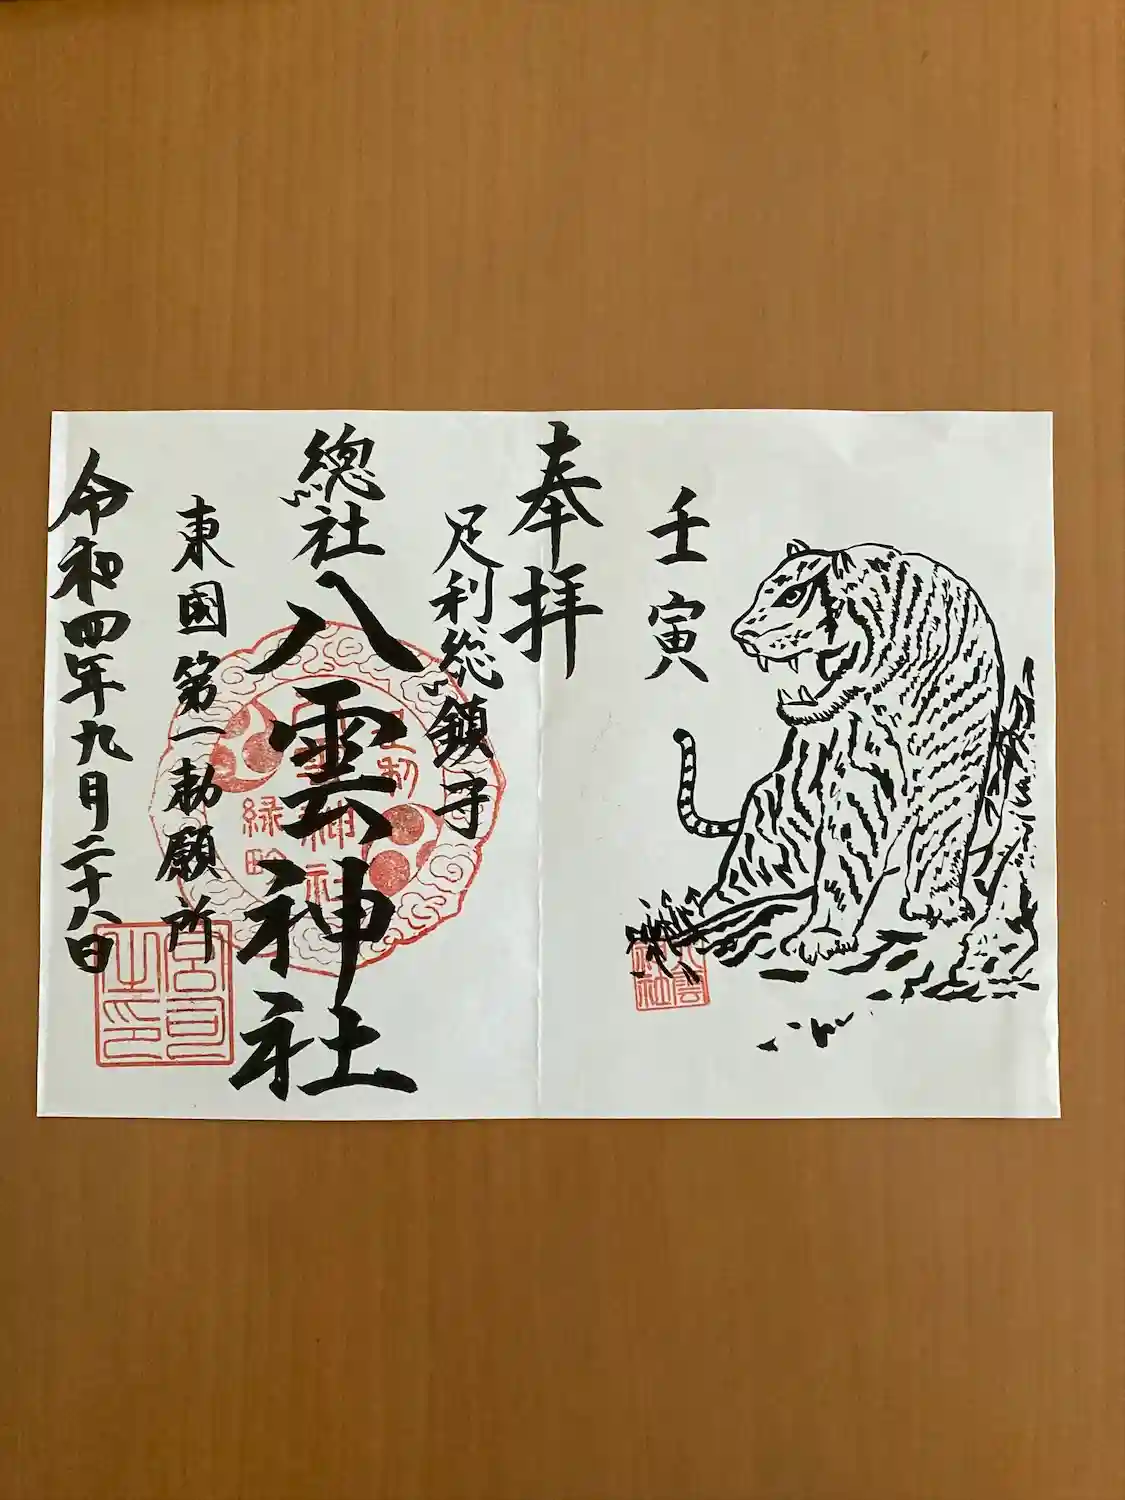 壬寅
奉拝
足利総鎮守
總社
八雲神社
東國第一勅願所
令和四年九月二十八日